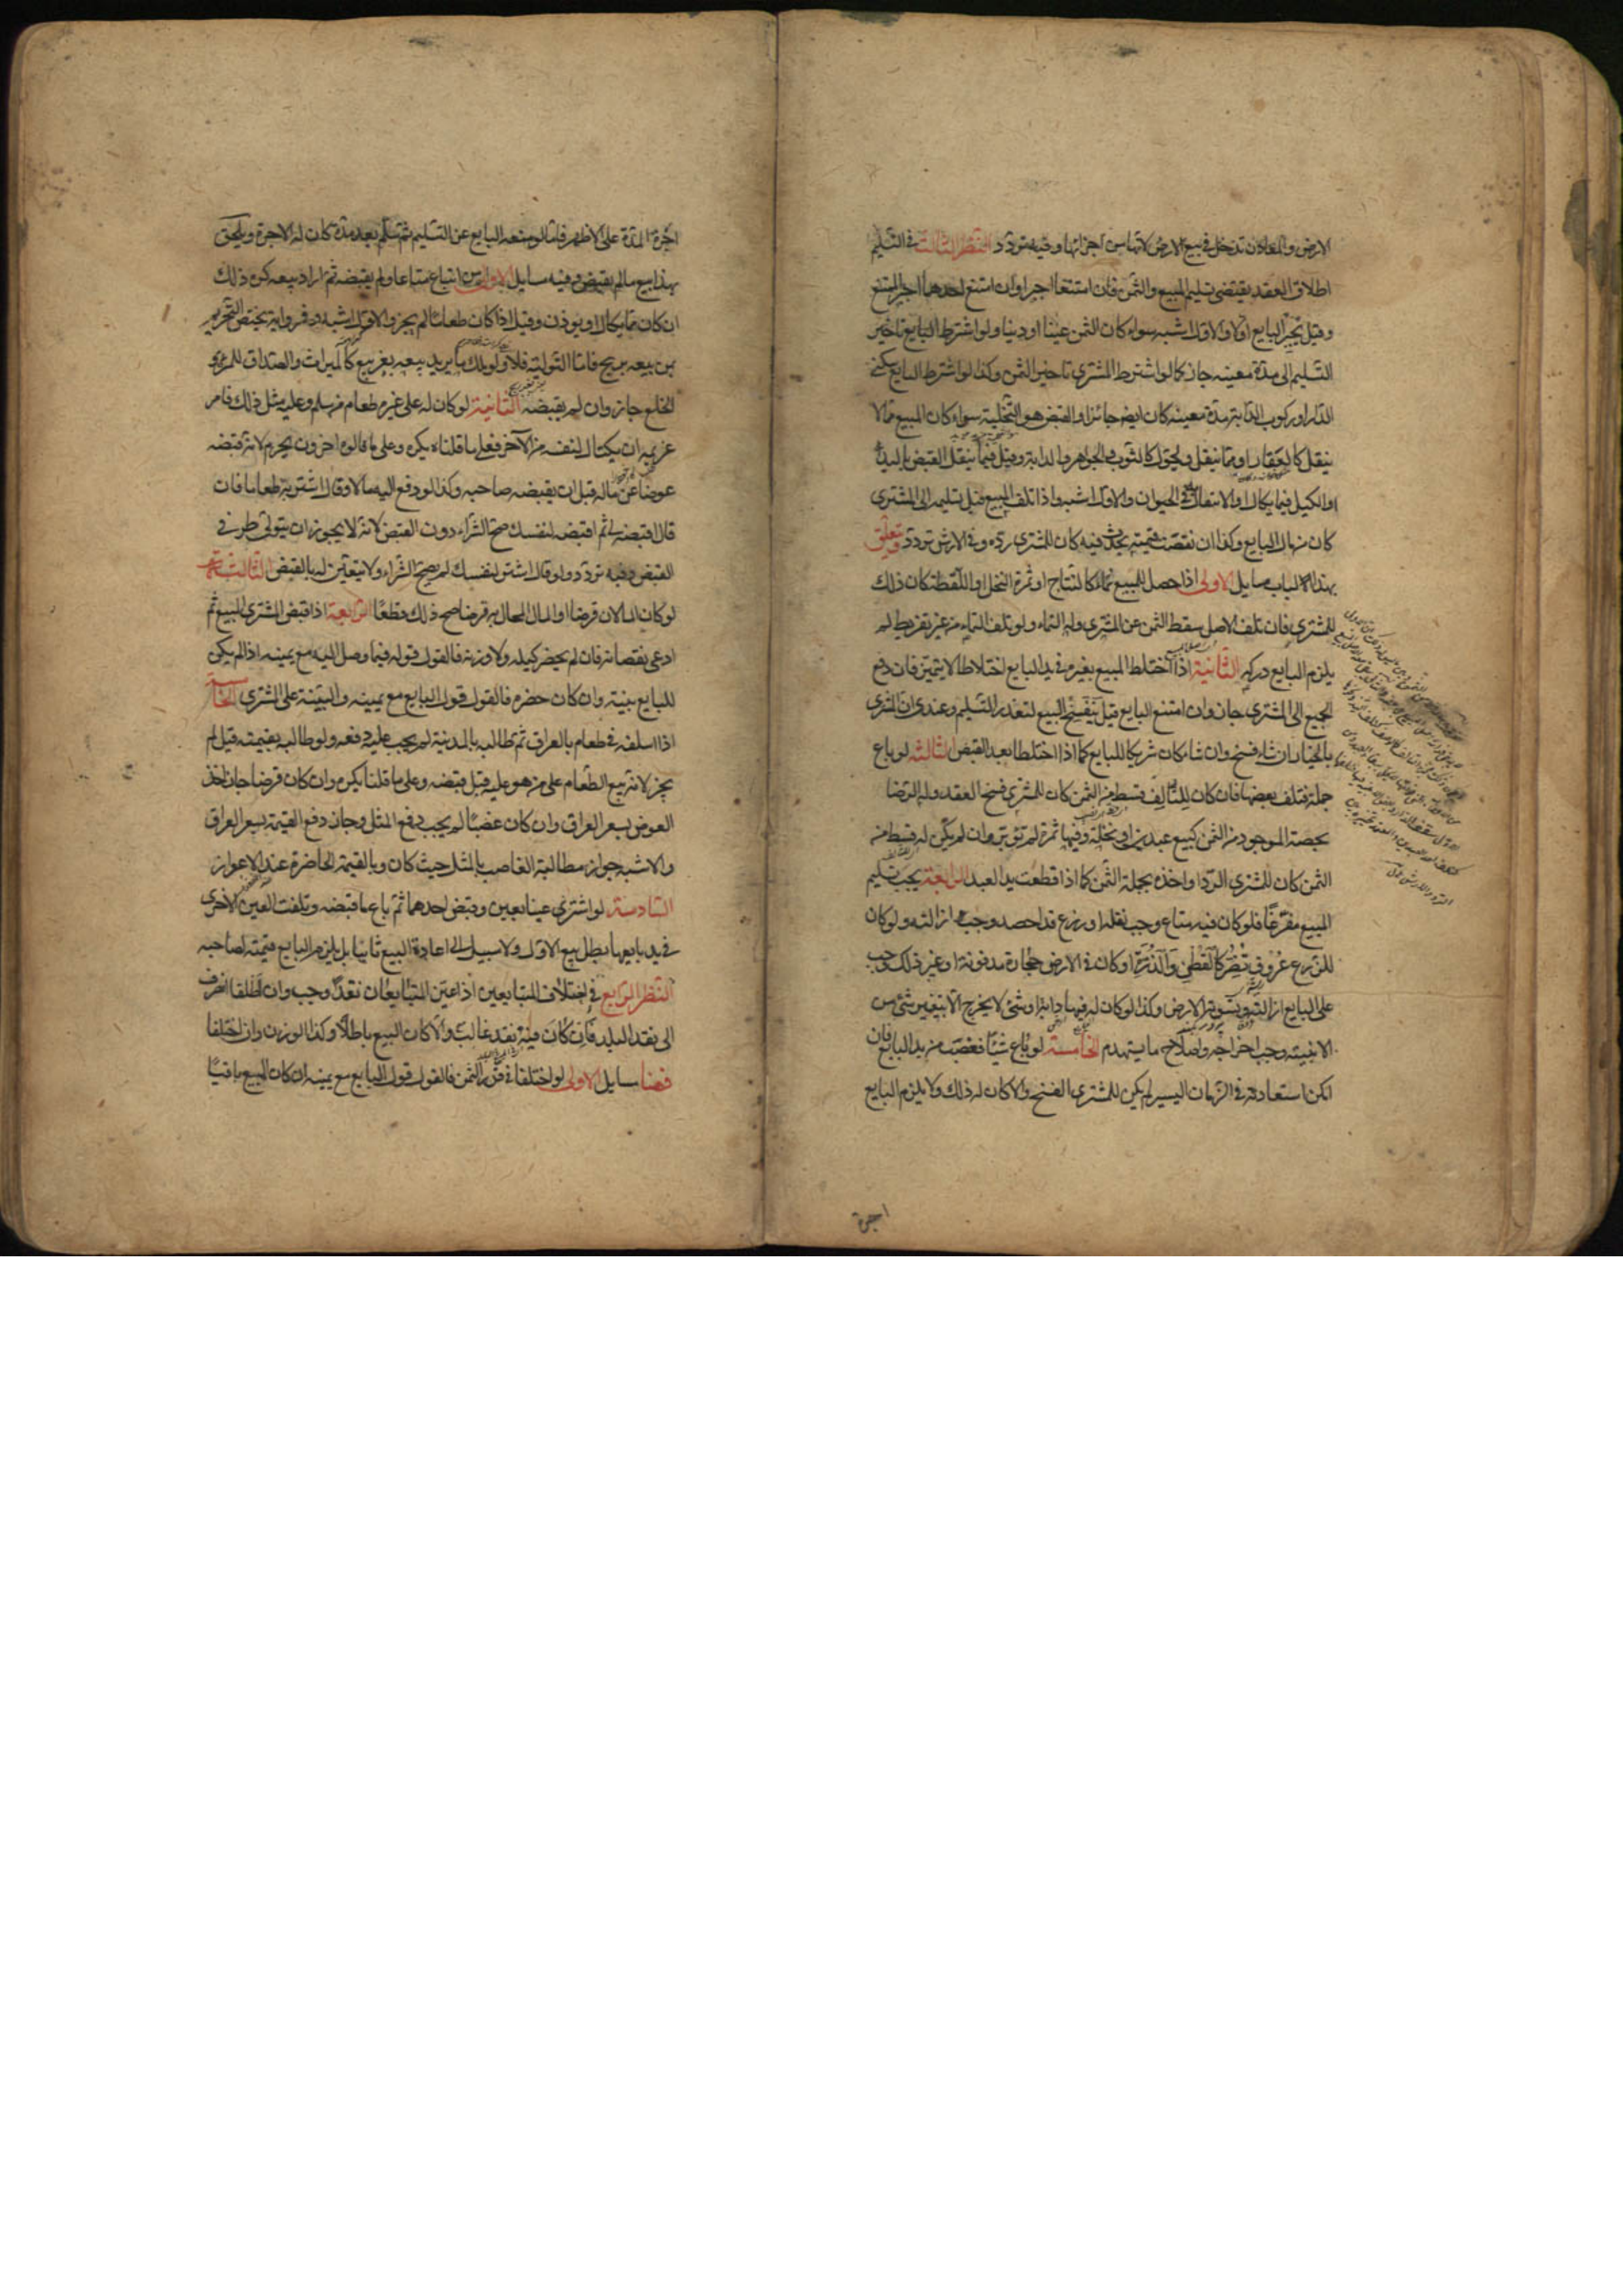 الارض والمعادن تدخل في بيع الارض لانها من اجزائها وفيه تردد النظر الثالث في التسليم
اطلاق العقد يقتضى تسليم المبيع والثمن فان امتنعا اجبرا وان امتنع احدهما اجبر الممتنع
وقيل يجبر البايع اولا والاول اشبه سواء كان الثمن عينا او دينا ولو اشترط البايع تاخير
التسليم الى مدة معينه جاز كما لو اشترط المشترى تاخير الثمن وكذا لو اشترط البايع سكنى
الدار او ركوب الدابة مدة معينه كان ايض جائزا والقبض هو التخلية سواء كان المبيع مما لا
ينقل كالعقار او مما ينقل ويحول كالثوب والجواهر والدابة وقيل فيما ينقل القبض باليد
او الكيل فيما يكال او الانتقال في الحيوان والاول اشبه واذا تلف المبيع قبل تسليمه الى المشترى
كان من مال البايع وكذا ان نقصت قيمته بحدث فيه كان للمشترى رده وفى الارش تردد ويتعلق
بهذا الباب مسايل الاولى اذا حصل للمبيع نماء كالنتاج او ثمرة النخل او اللقطة كان ذلك
للمشترى فان تلف الاصل سقط الثمن عن المشترى وله النماء ولو تلف النماء من غير تفريط لم
يلزم البايع دركه الثانية اذا اختلط المبيع بغيره فى يد البايع اختلاطا لا يتميز فان دفع
الجميع الى المشترى جاز وان امتنع البايع قيل ينفسخ البيع لتعذر التسليم وعندى ان المشترى
بالخيار ان شاء فسخ وان شاء كان شريكا للبايع كما اذا اختلطا بعد القبض الثالثه لو باع
جملة فتلف بعضها فان كان للتالف قسط من الثمن كان للمشترى فسخ العقد وله الرضا
بحصة الموجود من الثمن كبيع عبدين او نخلة وفيها ثمرة لم تؤبر وان لم يكن له قسط من
الثمن كان للمشترى الرد او اخذه بجملة الثمن كما اذا قطعت يد العبد الرابعة يجب تسليم
المبيع مفرغا فلو كان فيه متاع وجب نقله او زرع قد احصد وجب ازالته ولو كان
للزرع عروق تضر كالقطن والذرة او كان فى الارض حجارة مدفونة او غير ذلك وجب
على البايع ازالته وتسوية الارض وكذا لو كان له فيها دابة او شئ لا يخرج الا بتغيير شئ من
الابنيته وجب اخراجه واصلاح ما يتهدم الخامسة لو باع شيئا فغصب من يد البايع فان
امكن استعادته فى الزمان اليسير لم يكن للمشترى الفسخ والا كان له ذلك ولا يلزم البايع
اجرة
اجرة المدة على الاظهر فاما لو منعه البايع عن التسليم ثم سلم بعد مدة كان له الاجرة ويلحق
بهذا بيع مالم يقبض وفيه مسايل الاولى من ابتاع متاعا ولم يقبضه ثم اراد بيعه كره ذلك
ان كان مما يكال او يوزن وقيل اذا كان طعاما لم يجز والاول اشبه وفى رواية يختص التحريم
بمن بيعه بربح فاما التولية فلا ولو ملك ما يريد بيعه بغير بيع كالميراث والصداق للمراة
والخلع جاز وان لم يقبضه الثانية لو كان له على غيره طعام من سلم وعليه مثل ذلك فامر
غريمه ان يكتال لنفسه من الآخر فعلى ما قلناه يكره وعلى ما قالوه اخرون يحرم لانه قبضه
عوضا عن ماله قبل ان يقبضه صاحبه وكذا لو دفع اليه مالا وقال اشتر به طعاما فان
قال اقبضه لى ثم اقبضه لنفسك صح الشراء دون القبض لانه لا يجوز ان يتولى طرفى
القبض وفيه تردد ولو قال اشتر لنفسك لم يصح الشراء ولا يتعين له بالقبض الثالثة
لو كان المالان قرضا او المال المحال به قرضا صح ذلك قطعا الرابعة اذا قبض المشترى المبيع ثم
ادعى نقصانه فان لم يحضر كيله ولا وزنه فالقول قوله فيما وصل اليه مع يمينه اذا لم يكن
للبايع بينة وان كان حضره فالقول قول البايع مع يمينه والبينة على المشترى الخامسة
اذا اسلفه فى طعام بالعراق ثم طالبه بالمدينة لم يجب عليه دفعه ولو طالبه بقيمته قيل لم
يجز لانه بيع الطعام على من هو عليه قبل قبضه وعلى ما قلنا يكره وان كان قرضا جاز اخذ
العوض بسعر العراق وان كان غصبا لم يجب دفع المثل وجاز دفع القيمة بسعر العراق
والاشبه جواز مطالبة الغاصب بالمثل حيث كان وبالقيمة الحاضرة عند الاعواز
السادسة لو اشترى عينا بعين وقبض احدهما ثم باع ما قبضه وتلفت العين الاخرى
فى يد بايعها بطل بيع الاول ولا سبيل الى اعادة المبيع ثانيا بل يلزم البايع قيمته لصاحبه
النظر الرابع فى اختلاف المتبايعين اذا عين المتبايعان نقدا وجب وان اطلقا انصرف
الى نقد البلد فان كان فيه نقد غالب والا كان البيع باطلا وكذا الوزن وان اختلفا
فهنا مسايل الاولى لو اختلفا فى قدر الثمن فالقول قول البايع مع يمينه ان كان المبيع باقيا